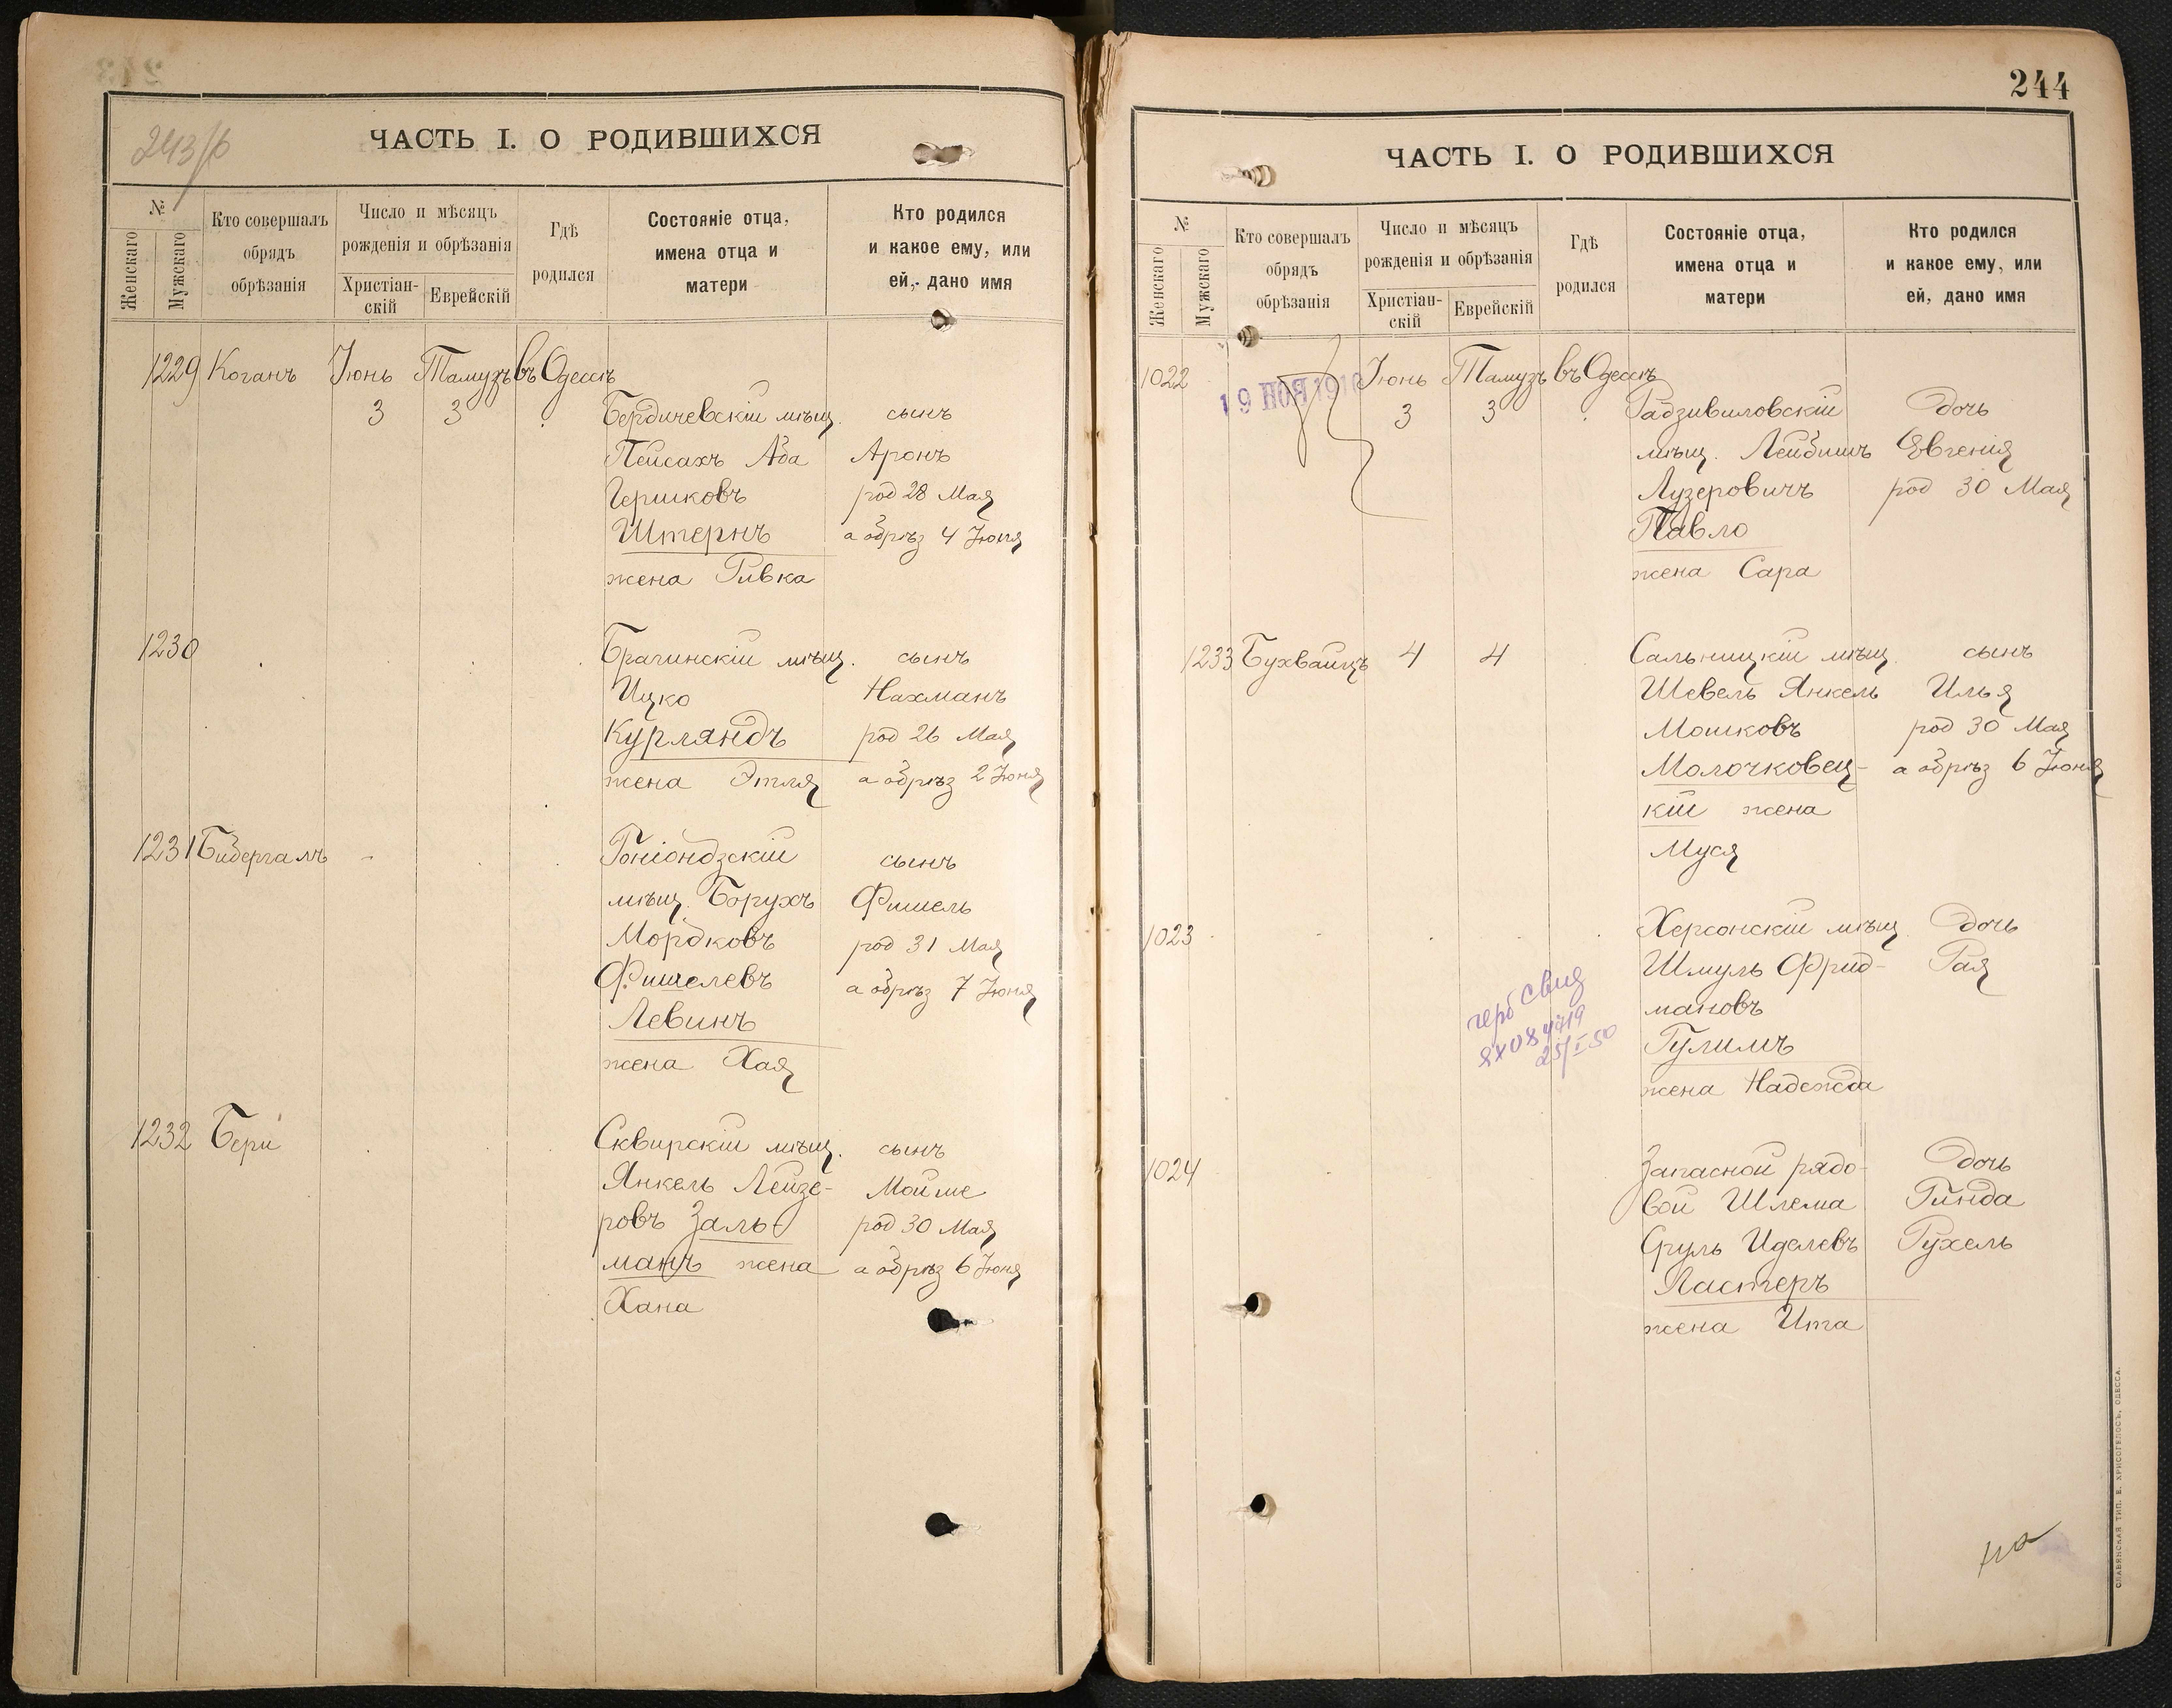 243/б
ЧАСТЬ I. О РОДИВШИХСЯ
№
Женскаго
Мужскаго
Кто совершалъ
обрядъ
обрѣзанія
Число и мѣсяцъ
рожденія и обрѣзанія
Христіан-
скій
Еврейскій
Гдѣ
родился
Состояніе отца,
имена отца и
матери
Кто родился
и какое ему, или
ей, дано имя
1229 Коганъ Іюнь Тамузъ въ Одессѣ
3 3 Бердичевскій мѣщ. сынъ
Пейсахъ Аба Аронъ
Гершковъ род 28 Мая
Штернъ а обрѣз 4 Іюня
жена Ривка
1230 Брагинскій мѣщ. сынъ
Ицко Нахманъ
Курляндъ род 26 Мая
жена Этля а обрѣз 2 Іюня
1231 Бибергалъ Гоніондзскій сынъ
мѣщ. Борухъ Фишель
Мордковъ род 31 Мая
Фишелевъ а обрѣз 7 Іюня
Левинъ
жена Хая
1232 Бери Сквирскій мѣщ. сынъ
Янкель Лейзе- Мойше
ровъ Заль- род 30 Мая
манъ жена а обрѣз 6 Іюня
Хана
244
ЧАСТЬ I. О РОДИВШИХСЯ
№
Женскаго
Мужскаго
Кто совершалъ
обрядъ
обрѣзанія
Число и мѣсяцъ
рожденія и обрѣзанія
Христіан-
скій
Еврейскій
Гдѣ
родился
Состояніе отца,
имена отца и
матери
Кто родился
и какое ему, или
ей, дано имя
1022 Іюнь Тамузъ въ Одессѣ
19 НОЯ 1916
3 3 Радзивиловскій дочь
мѣщ. Лейбишъ Евгенія
Лузеровичъ род 30 Мая
Павло
жена Сара
1233 Бухвайцъ 4 4 Сальницкій мѣщ. сынъ
Шевель Янкель Илья
Мошковъ род 30 Мая
Молочковец- а обрѣз 6 Іюня
кій жена
Муся
1023 Херсонскій мѣщ. дочь
Шмуль Фрид- Рая
мановъ
Гулимъ
жена Надежда
25/I 50
1024 Запасной рядо- дочь
вой Шлема Гинда
Сруль Иделевъ Рухель
Ластеръ
жена Ита
СЛАВЯНСКАЯ ТИП. Е. ХРИСОГЕЛОСЪ, ОДЕССА.